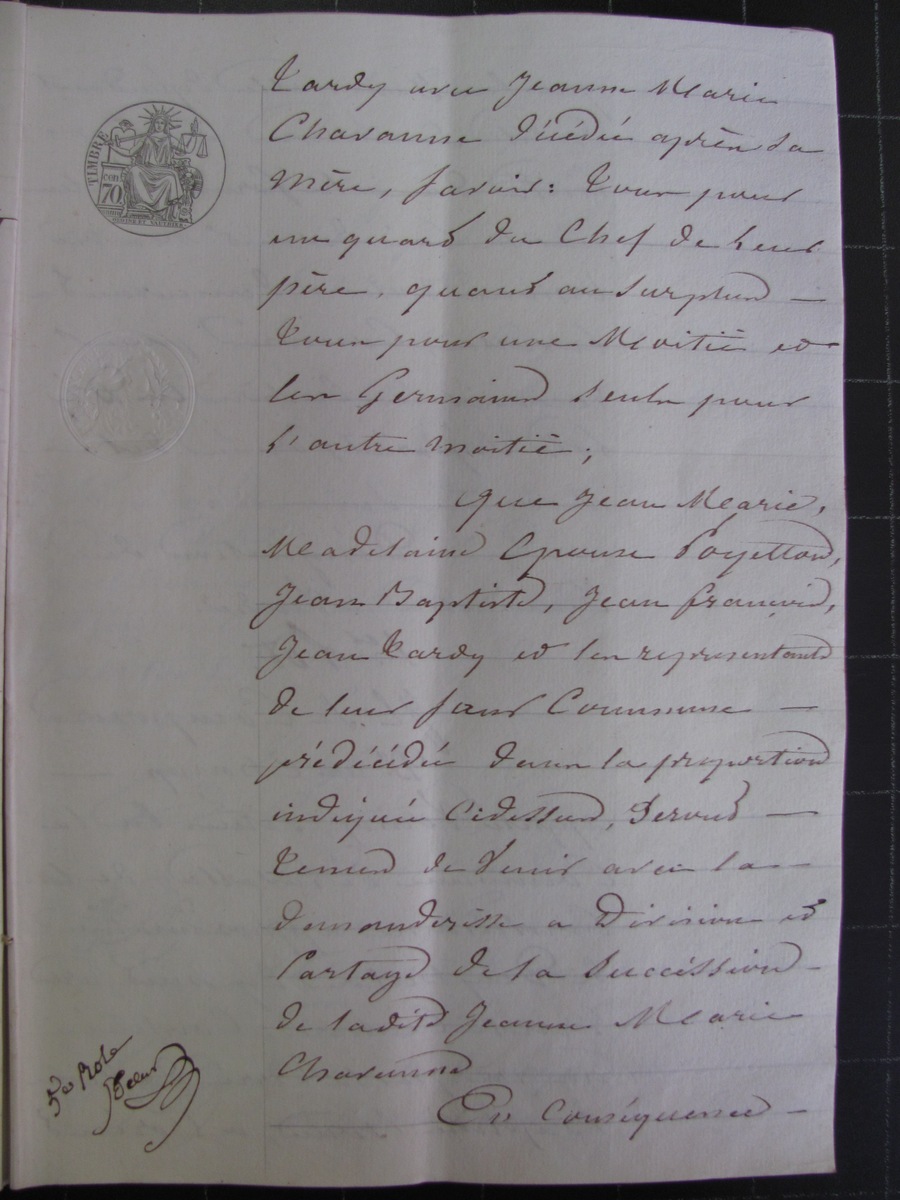 TIMBRE
70
Tardy avec Jeanne Marie
Chavanne décédée après sa
mère, savoir: Tous pour
un quart du Chef de leur
père, quant au surplus —
Tous pour une Moitié et
les Germains seuls pour
l'autre moitié;
que Jean Marie,
Madelaine Epouse Poyetton,
Jean Baptiste, Jean françois,
Jean Tardy et les représentants
de leur sœur Commune —
prédécédée dans la proportion
indiquée Cidessus, Seront —
tenus de Venir avec la —
demanderesse a Division et
Partage de la Succéssion —
de ladite Jeanne Marie
Chavanne
En Conséquence —
5e Role